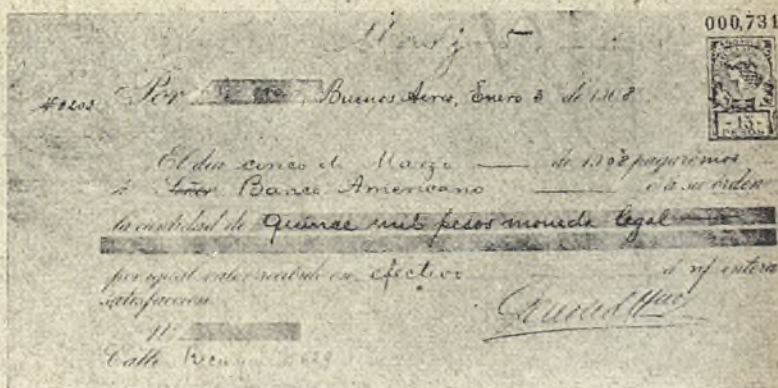 000,731
Marzo 5
#0203 Por Buenos Aires, Enero 3 de 1908
- 15 -
PESOS
El dia cinco de Marzo de 1908 pagaremos
á Señor Banco Americano ó á su orden
la cantidad de Quince mil pesos moneda legal
por igual valor recibido en efectivo á n/ entera
satisfacción.
Calle